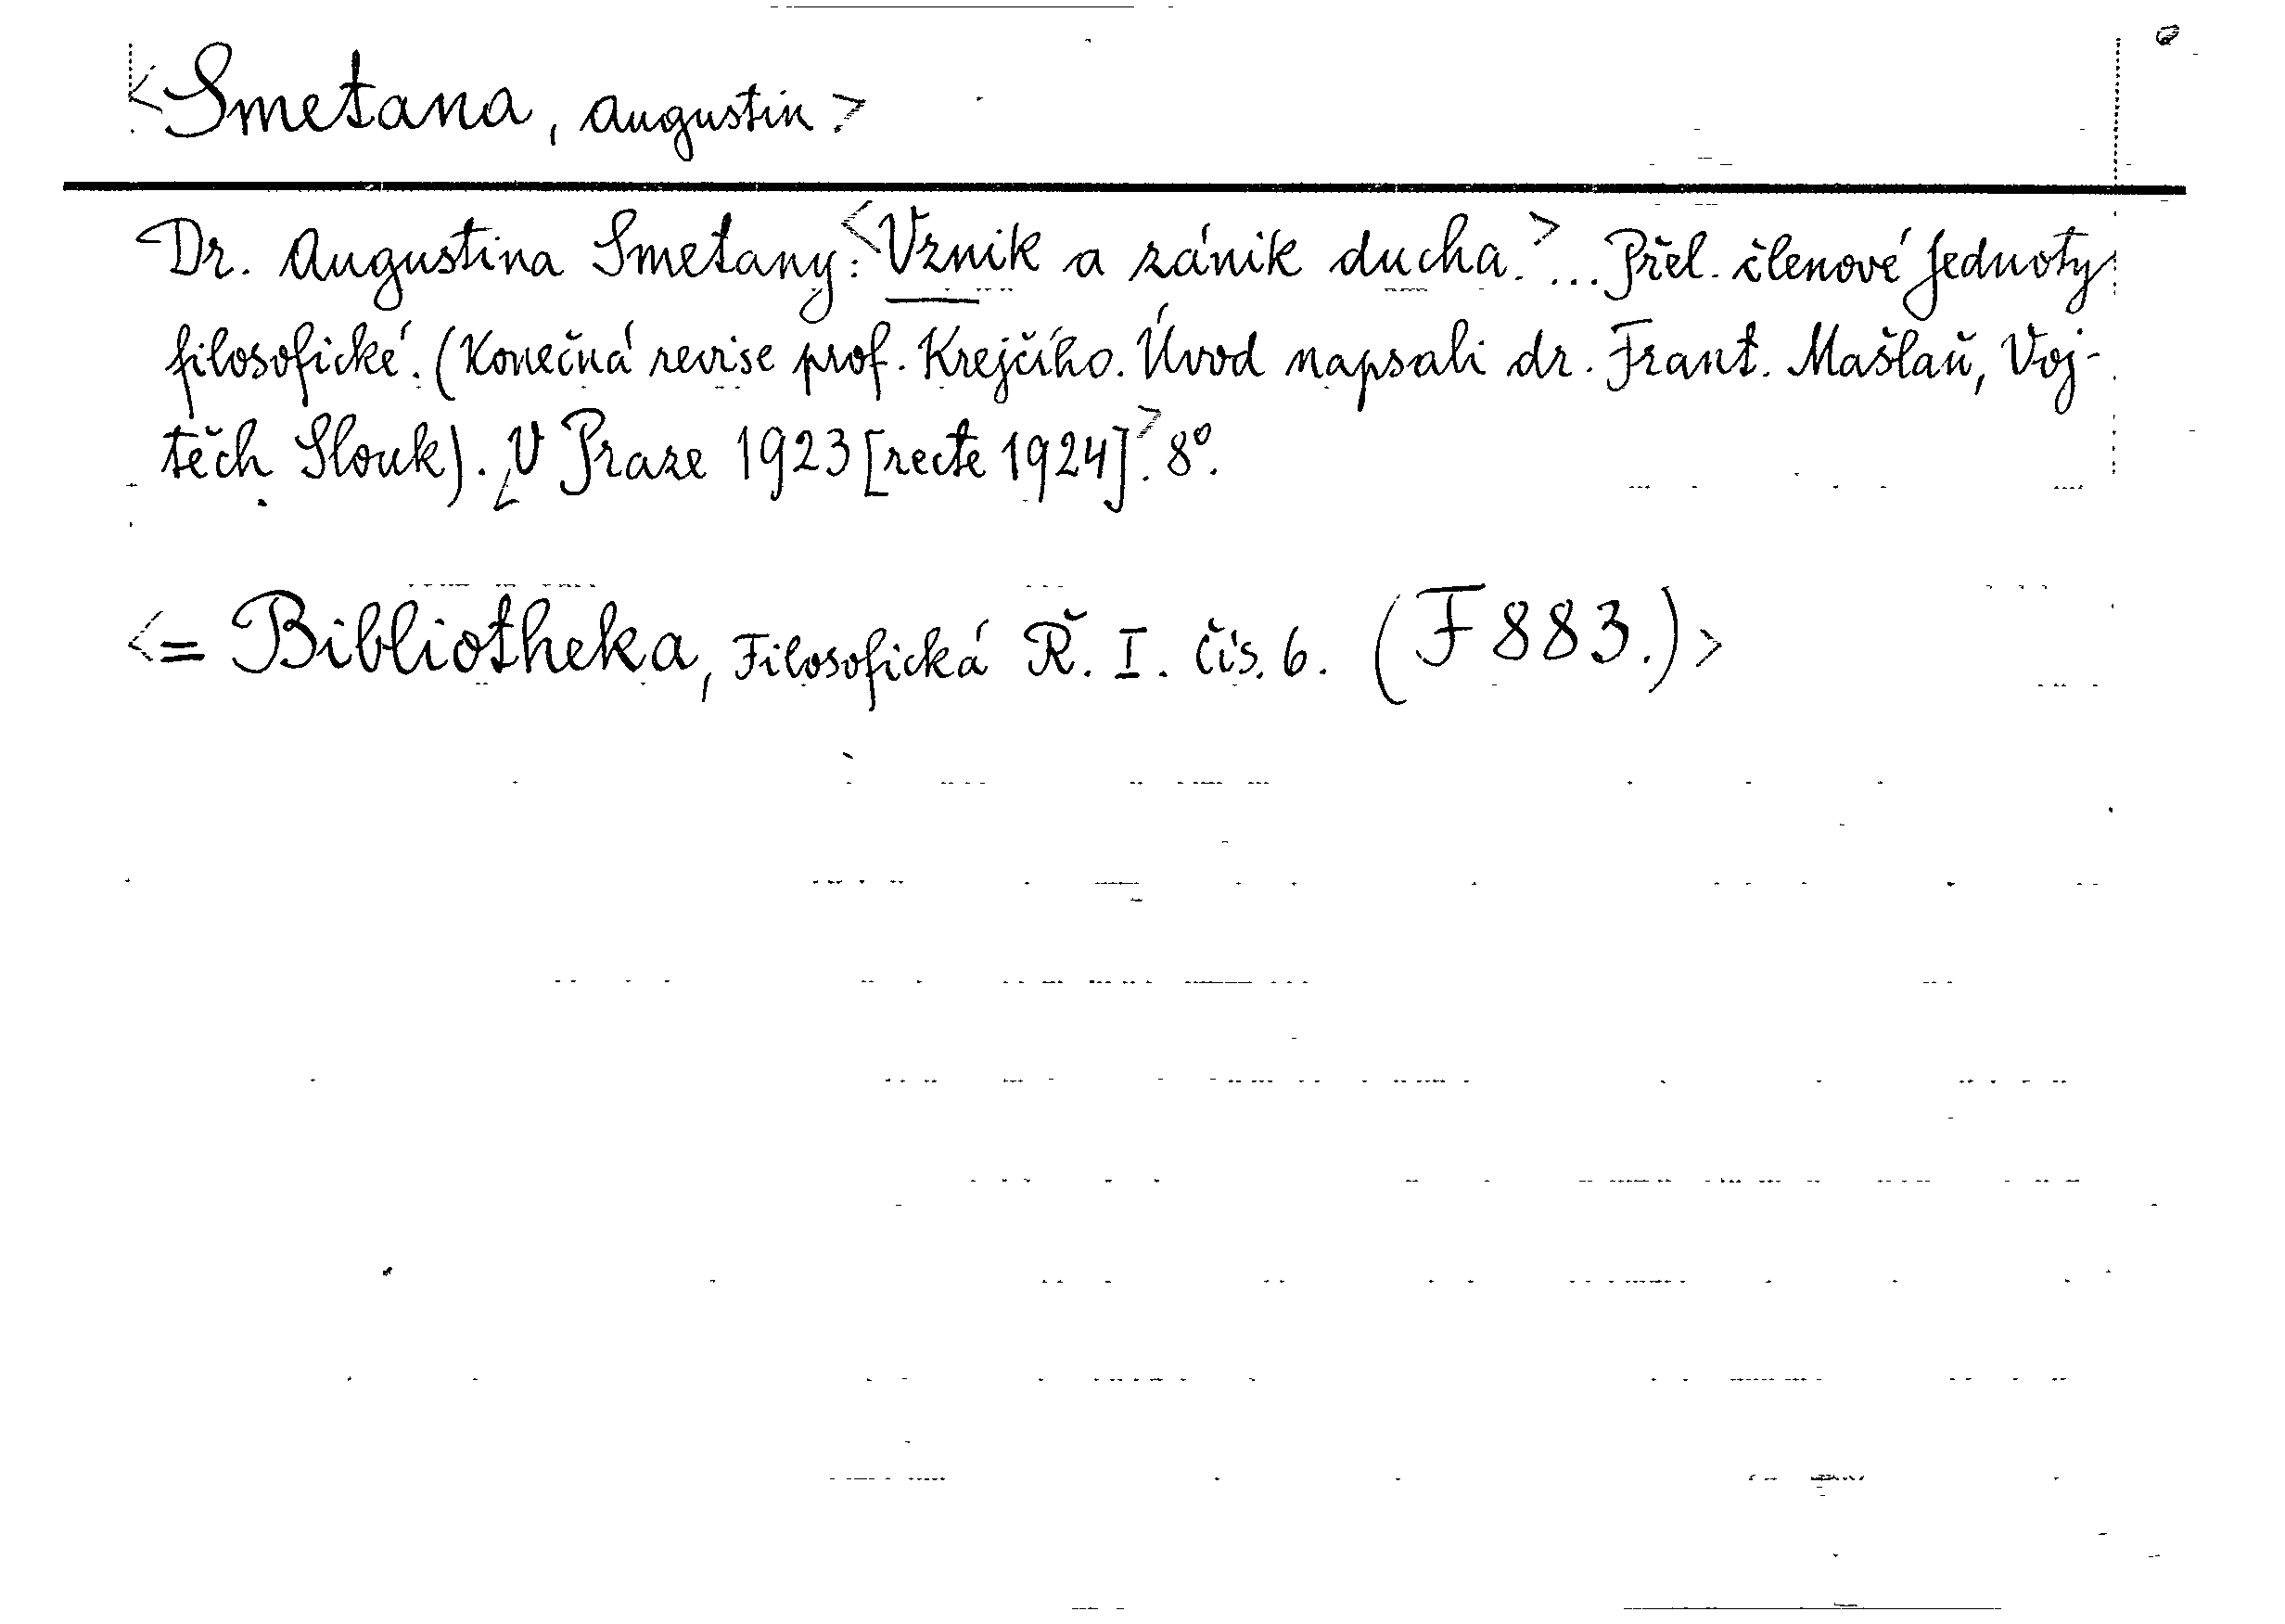 <Smetana, Augustin>
Dr. Augustina Smetany: <Vznik a zánik ducha.> ... Přel. členové Jednoty
filosofické. (Konečná revise prof. Krejčího. Úvod napsali dr. Frant. Mašlaň, Voj-
těch Slouk). <V Praze 1923 [recte 1924].> 8°.
<= Bibliotheka, Filosofická Ř. I. čís. 6. (F 883.)>